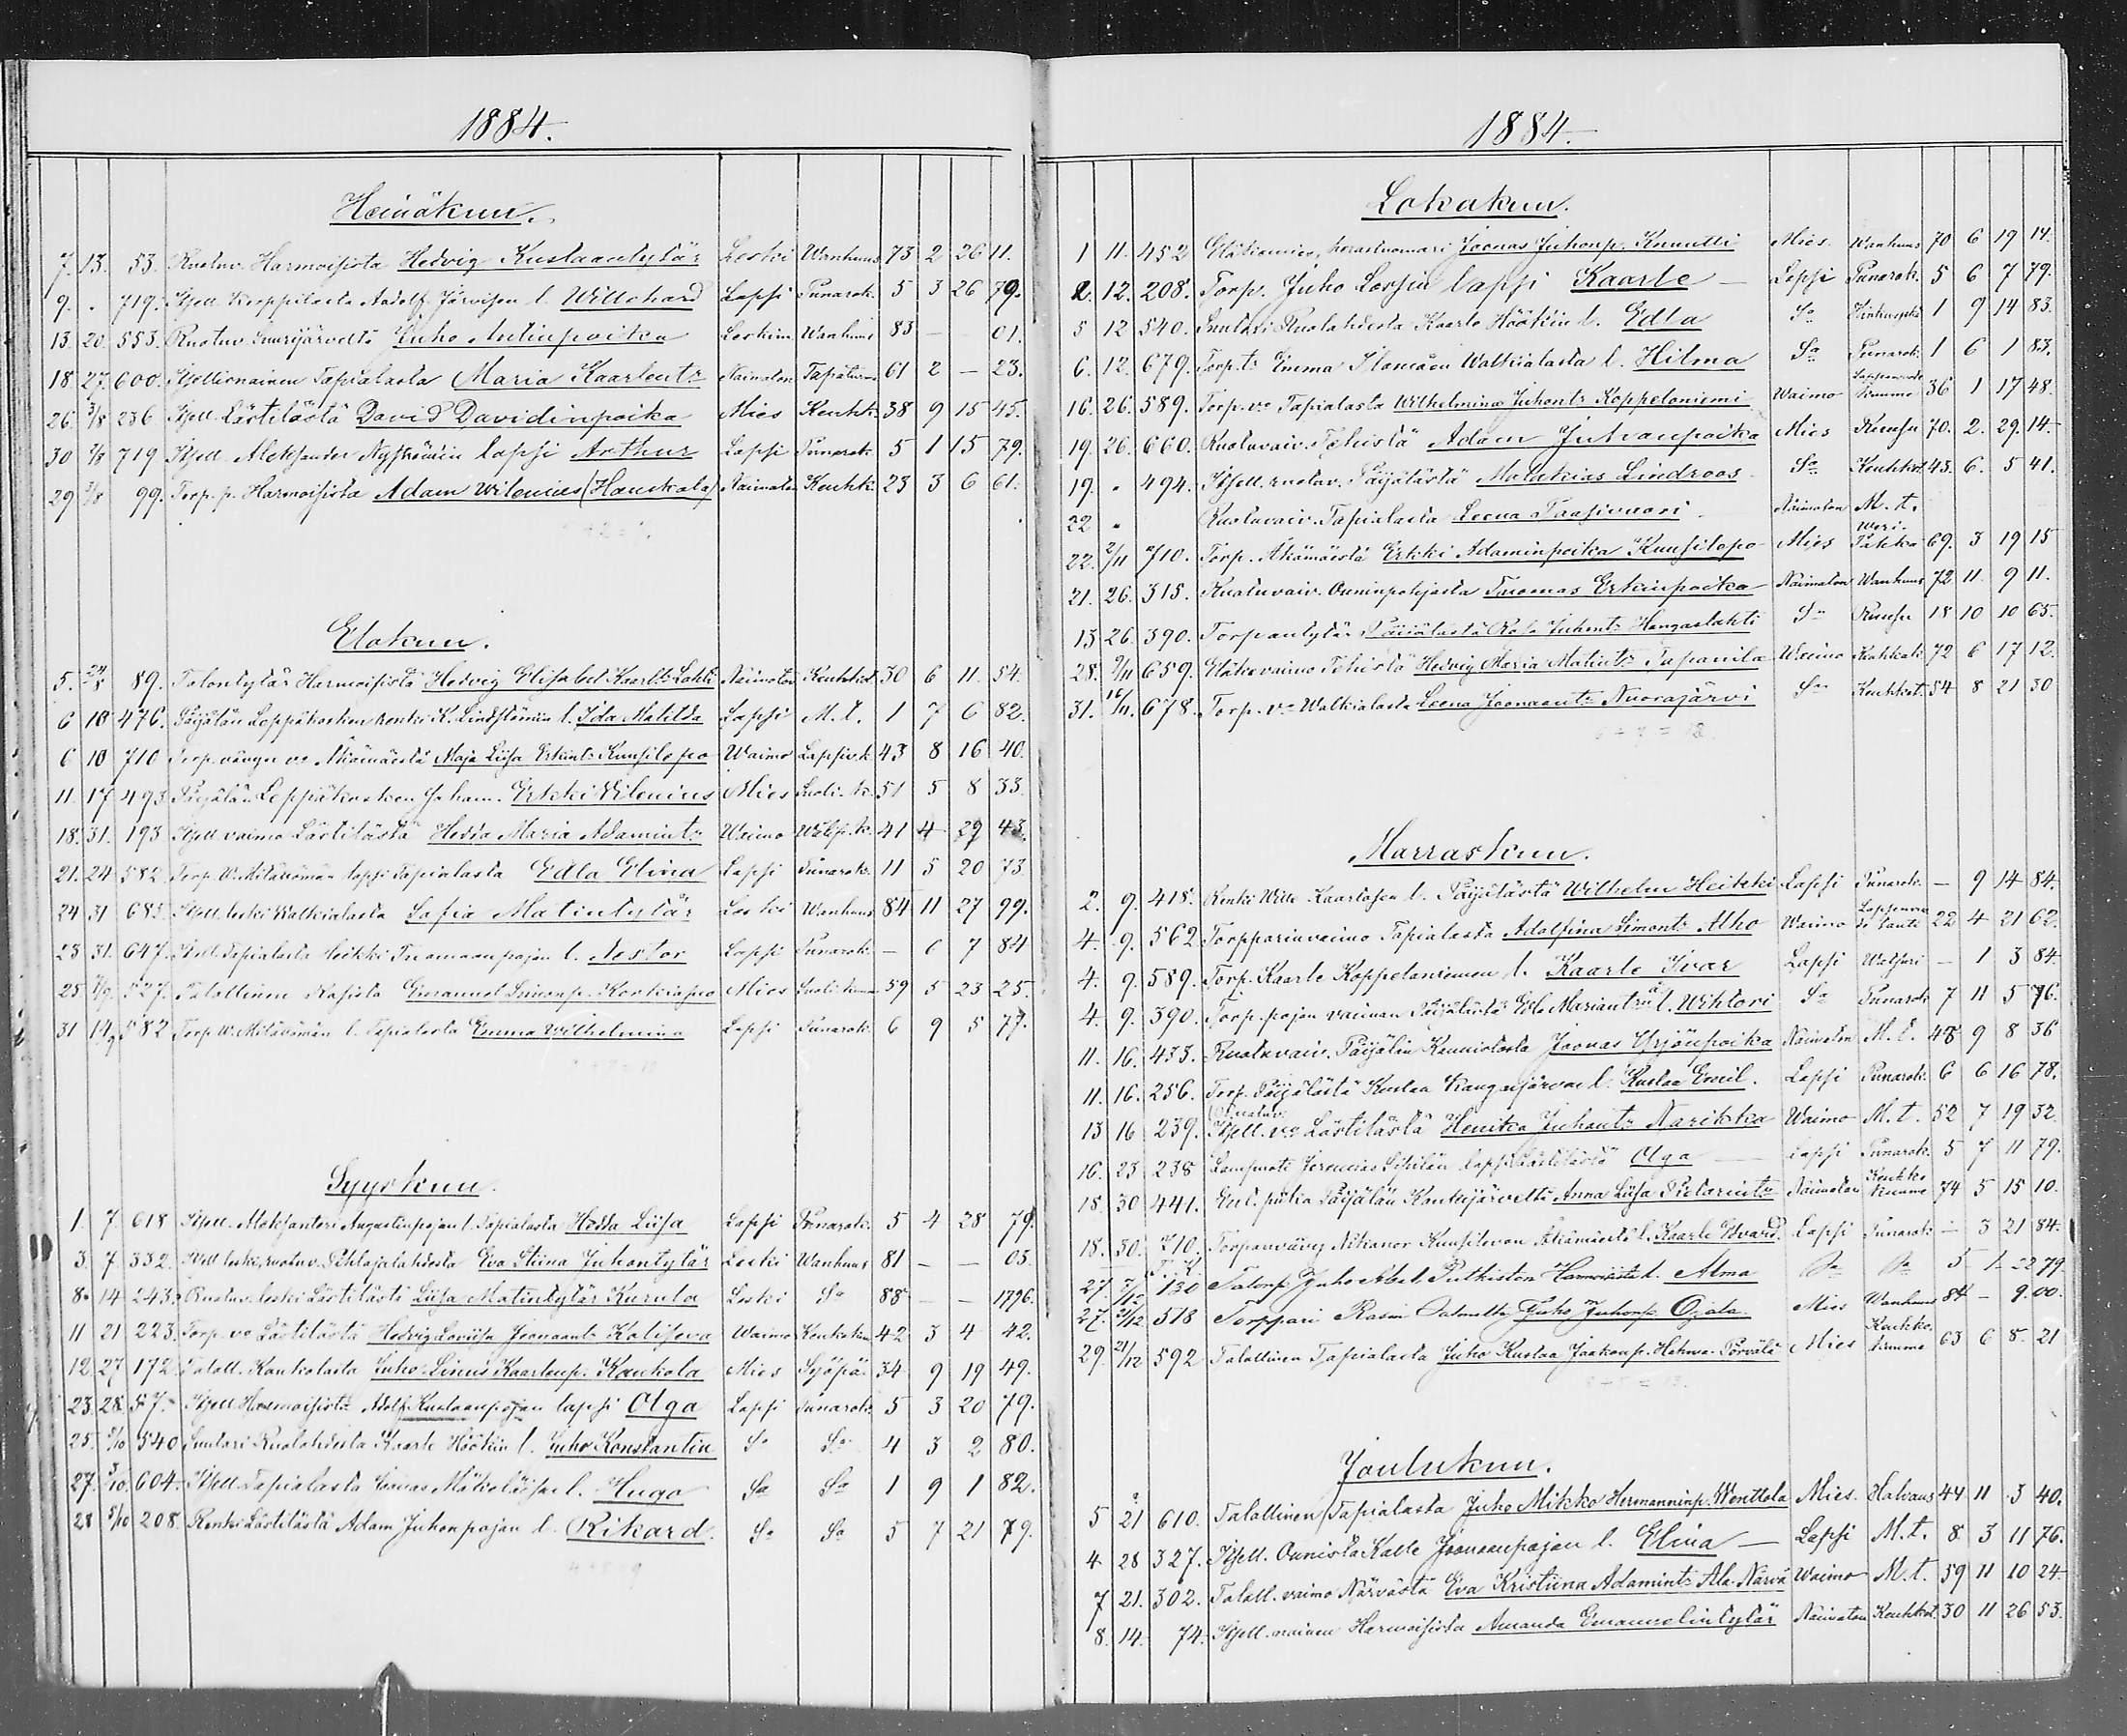 1884.
Heinäkuu.
7. 13. 53. Ruotuv. Harmoisista Hedvig Kustaantytär Leski Wanhuus 73 2 26 11.
9. " 719. Itsell. Adolf Järvisen l. Willehard Lapsi Punarok. 5 3 26 79.
13. 20. 553. Ruotuv. Suurijärveltä Juho Antinpoika Leskim Wanhuus 83 — — 01.
18. 27. 600. Itsellisnainen Tapialasta Maria Kaarlentr Naimaton Tapaturma 61 2 — 23.
26. 3/8 236 Itsell. Lästilästä David Davidinpoika Mies Keuhk. 38 9 15 45.
30 3/8 719 Itsell. Aleksander Nyströmin lapsi Arthur Lapsi Punarok. 5 1 15 79.
29 3/8 99. Torp. p. Harmoisista Adam Wilenius (Hauskala) Naimaton Keuhk. 23 3 6 61.
Elokuu.
5. 24/8 89. Talontytär Harmoisista Hedvig Elisabet Kaarlentr Lahti Naimaton Keuhkot. 30 6 11. 54.
6 10 476. Päijälän Leppäkosken renki K. Lindströmin l. Ida Matilda Lapsi M. t. 1 7 6 82.
6 10 710 Torp. vävyn vo Äkämäestä Maja Liisa Erkintr Kuusilepo Waimo Lapsiv.k. 43 8 16 40.
11. 17 493. Päijälän Leppäkosken Erkki Wilenius Mies Suoli-k. 51 5 8 33.
18. 31. 193 Itsell. vaimo Lästilästä Hedda Maria Adamintr Waimo 41 4 29 43.
21. 24 582 Torp. W. Mikäromän lapsi Tapialasta Edla Elina Lapsi Punarok. 11 5 20 73.
24 31 685. Itsell. leski Walkialasta Sofia Matintytär Leski Wanhuus 84 11 27 99.
23 31. 647. Itsell. Tapialasta Heikki Tuomaanpojan l. Nestor Lapsi Punarok. — 6 7 84
25 7/9. 527. Talollinen Rasista Emanuel Simonp. Korkiapuo Mies 59 5 23 25.
31 14/9 582 Torp. W. l. Tapialasta Emma Wilhelmina Lapsi Punarok. 6 9 5 77.
Syyskuu.
1. 7. 618 Itsell. Aleksanteri Augustinpojan l. Tapialasta Hedda Liisa Lapsi Punarok. 5 4 28 79.
3. 7 332. Itsell. leski, ruotuv. Pihlajalahdesta Eva Stiina Juhontytär Leski Wanhuus 81 — — 03.
8. 14 243. Ruotuv. leski Lästilästä Liisa Matintytär Kurula Leski So 88 — — 1796.
11 21 223. Torp. vo Lästilästä Hedvig Loviisa Joonaantr Waimo 42 3 4 42.
12 27 172 Taloll. Kaukolasta Juho Linus Kaarlenp. Kaukola Mies Syöpä 34 9 19 49.
23. 28. 57. Itsell. Harmoisista Adolf Kustaanpojan lapsi Olga Lapsi Punarok. 5 3 20 79.
25. 5/10 540 Suutari Ruolahdesta Kaarle Höökin l. Juho Konstantin So So 4 3 2 80.
27. 5/10. 604. Itsell. Tapialasta Joonas Mäkeläisen l. Hugo So So 1 9 1 82.
28 5/10 208. Renki Lästilästä Adam Juhonpojan l. Rikard. So So 5 7 21 79.
1884.
Lokakuu.
1 11. 452 Elätiesmies, herastuomari Joonas Juhonp. Knuutti Mies. Wanhuus 70 6 19 14.
2. 12. 208. Torp. Juho lapsi Kaarle — Lapsi Punarok. 5 6 7 79.
5 12 540. Suutari Ruolahdesta Kaarle Höökin l. Edla So 1 9 14 83.
6. 12. 679. Torp. tr Emma Ilomäen Walkialasta l. Hilma So Punarok. 1 6 1 83.
16. 26. 589. Torp. vo Tapialasta Wilhelmina Juhontr Koppeloniemi Waimo 36 1 17 48.
19. 26. 660. Ruotuvaiv. Tehistä Adam Juhanpoika Mies 70. 2. 29. 14.
19. " 494. Itsell. ruotuv. Päijälästä Malakias Lindroos So Keuhkot. 43. 6. 5 41.
22 " Ruotuvaiv. Tapialasta Leena Taasivuori Naimaton M. t.
22. 2/11 710. Torp. Äkämäestä Erkki Adaminpoika Kuusilepo Mies 69. 3 19 15
21. 26. 315. Ruotuvaiv. Onninpohjasta Tuomas Erkinpoika Naimaton Wanhuus 72 11. 9 11.
13. 26. 390. Torpantytär Päijälästä Juhontr Hangaslahti So 18 10 10 65.
28. 9/11 659. Elätiesvaimo Tehistä Hedvig Maria Matintr Tapanila Waimo 72 6 17 12.
31. 16/11. 678. Torp. vo Walkialasta Leena Joonaantr Nuorajärvi So Keuhkot. 54 8 21 30
Marraskuu.
2. 9. 418. Renki Wille Kaarlosen l. Päijälästä Wilhelm Heikki Lapsi Punarok. — 9 14 84.
4. 9. 562 Torpparinvaimo Tapialasta Adolfina Simontr Alho Waimo 22 4 21 62.
4. 9. 589. Torp. Kaarle Koppeloniemen l. Kaarle Ivar Lapsi — 1 3 84.
4. 9. 390. Torp. pojan vaiman Päijälästä l. Wihtori So Punarok. 7 11 5 76.
11. 16. 433. Ruotuvaiv. Päijälän Joonas Yrjönpoika Naimaton M. t. 48 9 8 36
11. 16. 256. Torp. Päijälästä Kustaa Kaugasjärven l. Kustaa Emil. Lapsi Punarok. 6 6 16 78.
13 16 239. Itsell. vo Lästilästä Henrika Juhontr Narikka Waimo M. t. 52 7 19 32
16. 23 238 Lampuoti Jeremias lapsi Lästilästä Olga — Lapsi Punarok. 5 7 11 79.
18. 30 441. Päijälän Kankijärveltä Anna Liisa Pietarintr Naimaton Keuhkokuume 74 5 15 10.
18. 30. 710. Torpanvävy Nikanor Kuusilevon Äkämäestä l. Kaarle Edvard. Lapsi Punarok. — 3 21 84.
27. 7/12 130 Talonp. Juho Abel Putkiston Harmoisista l. Alma So So 5 1 22 79
27. 21/12 518 Torppari Juho Juhonp. Ojala Mies Wanhuus 84 — 9. 00.
29. 21/12 592 Talollinen Tapialasta Juho Kustaa Jaakonp. Mies Keuhkokuume 63 6 8. 21
Joulukuu.
5 21 610. Talollinen Tapialasta Juho Mikko Hermanninp. Wenttola Mies. Halvaus 44 11 3 40.
4 28 327. Itsell. Onnista Kalle Joonaanpojan l. Elina — Lapsi M. t. 8 3 11 76.
7 21. 302. Taloll. vaimo Närvästä Eva Kristiina Adamintr Ala-Närvä Waimo M. t. 59 11 10 24
8. 14. 74. Itsell. nainen Harmoisista Amanda Emanuelintytär Naimaton Keuhkot. 30 11 26 53.